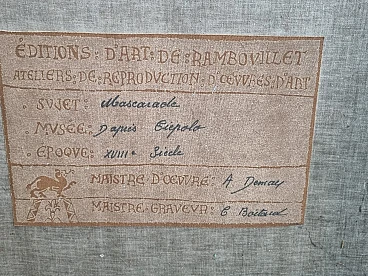 ÉDITIONS : D'ART : DE : RAMBOUILLET
ATELIERS : DE : REPRODUCTION : D'ŒUVRES : D'ART
SUJET : Mascarade
MUSÉE : D'après Tiepolo
ÉPOQUE : XVIIIe Siècle
MAISTRE D'ŒUVRE : A
MAISTRE GRAVEUR :